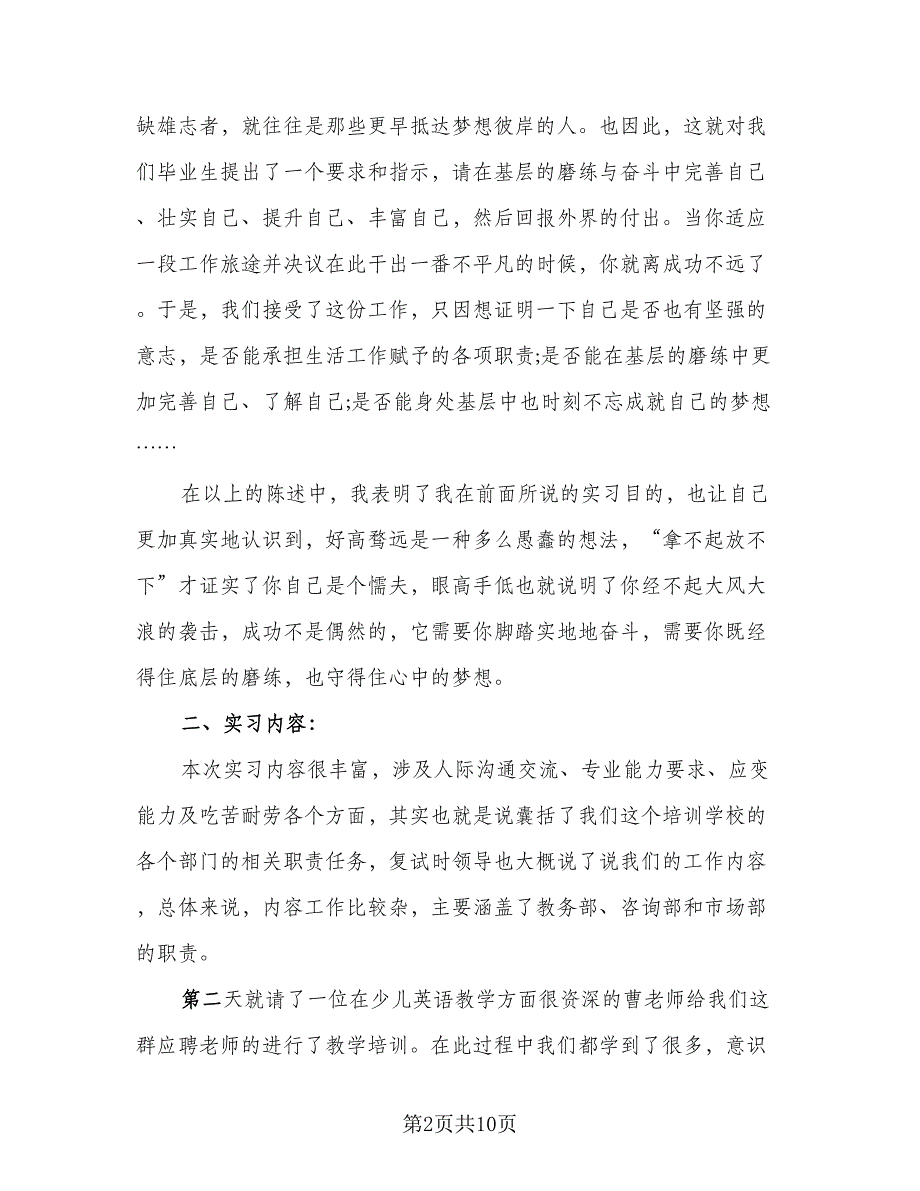 缺雄志者，就往往是那些更早抵达梦想彼岸的人。也因此，这就对我
们毕业生提出了一个要求和指示，请在基层的磨练与奋斗中完善自己
、壮实自己、提升自己、丰富自己，然后回报外界的付出。当你适应
一段工作旅途并决议在此干出一番不平凡的时候，你就离成功不远了
。于是，我们接受了这份工作，只因想证明一下自己是否也有坚强的
意志，是否能承担生活工作赋予的各项职责;是否能在基层的磨练中更
加完善自己、了解自己;是否能身处基层中也时刻不忘成就自己的梦想
……
在以上的陈述中，我表明了我在前面所说的实习目的，也让自己
更加真实地认识到，好高骛远是一种多么愚蠢的想法，“拿不起放不
下”才证实了你自己是个懦夫，眼高手低也就说明了你经不起大风大
浪的袭击，成功不是偶然的，它需要你脚踏实地地奋斗，需要你既经
得住底层的磨练，也守得住心中的梦想。
二、实习内容：
本次实习内容很丰富，涉及人际沟通交流、专业能力要求、应变
能力及吃苦耐劳各个方面，其实也就是说囊括了我们这个培训学校的
各个部门的相关职责任务，复试时领导也大概说了说我们的工作内容
，总体来说，内容工作比较杂，主要涵盖了教务部、咨询部和市场部
的职责。
第二天就请了一位在少儿英语教学方面很资深的曹老师给我们这
群应聘老师的进行了教学培训。在此过程中我们都学到了很多，意识
第2页共10页